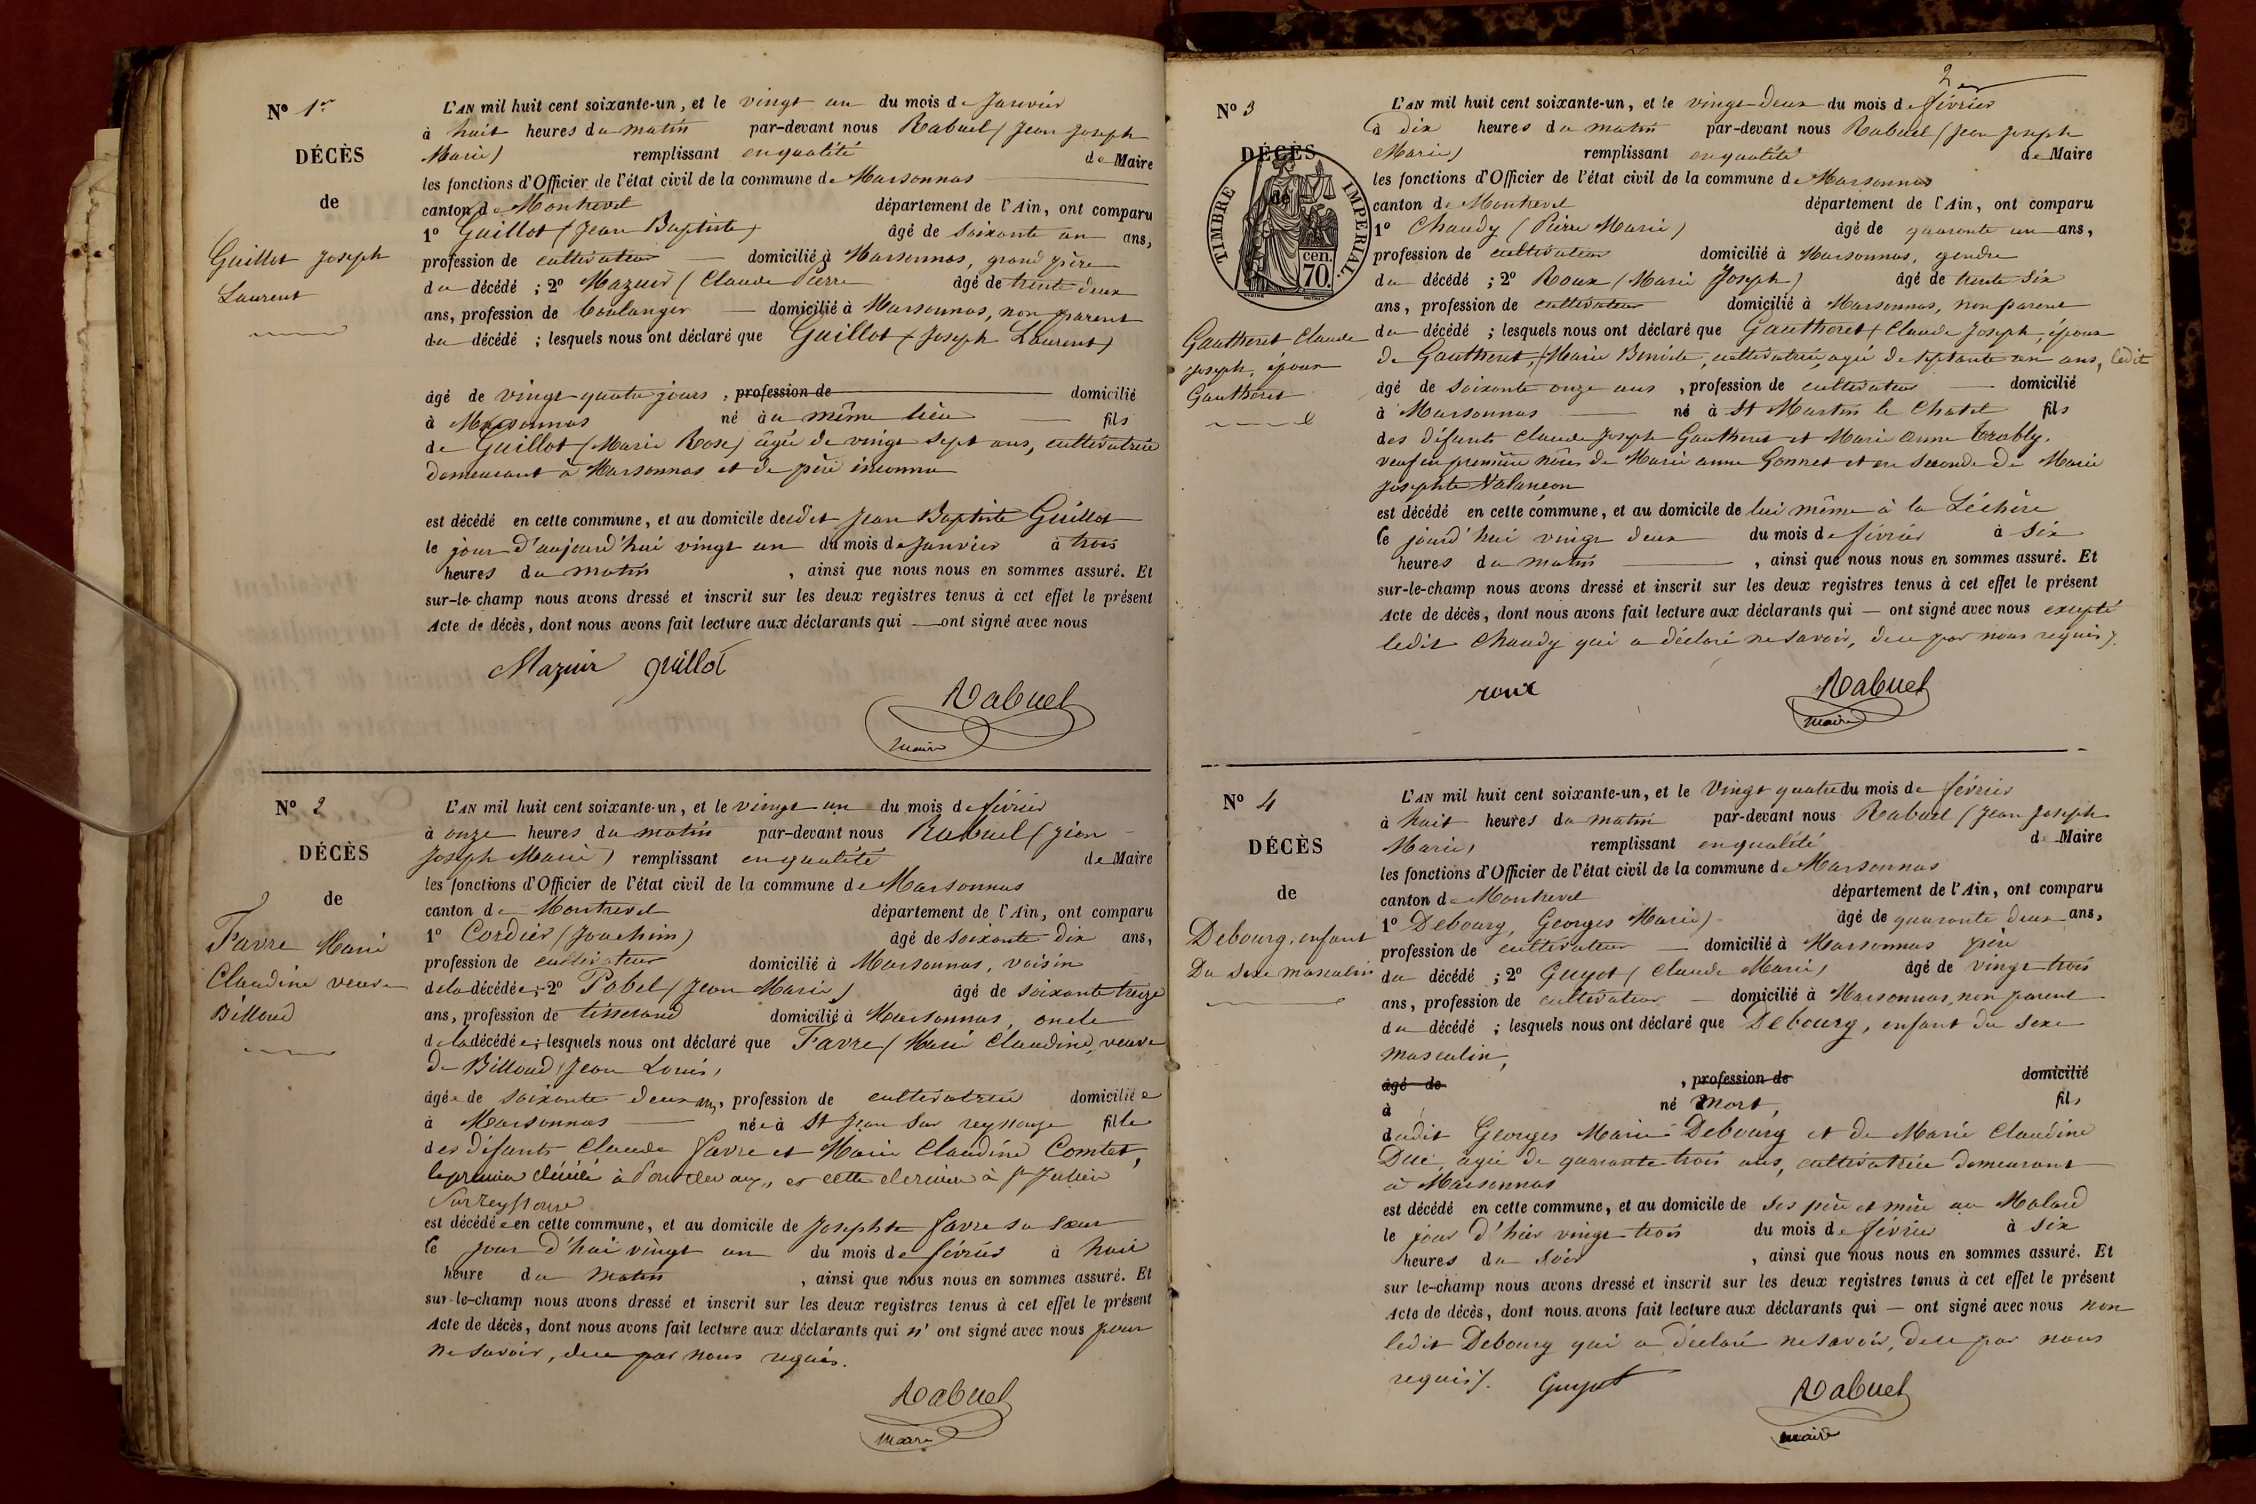 N° 1er
DÉCÈS
de
Guillot Joseph
Laurent
L'AN mil huit cent soixante-un, et le vingt un du mois de Janvier
à huit heures du matin par-devant nous Rabuel (Jean Joseph
Marie) remplissant en qualité de Maire
les fonctions d'Officier de l'état civil de la commune de Marsonnas
canton de Montrevel département de l'Ain, ont comparu
1° Guillot (Jean Baptiste) âgé de soixante un ans,
profession de cultivateur domicilié à Marsonnas, grand père
du décédé ; 2° Mazuir (Claude Pierre âgé de trente deux
ans, profession de boulanger domicilié à Marsonnas, non parent
du décédé ; lesquels nous ont déclaré que Guillot (Joseph Laurent)
âgé de vingt quatre jours, profession de domicilié
à Marsonnas né à au même lieu fils
de Guillot (Marie Rose) âgée de vingt sept ans, cultivatrice
demeurant à Marsonnas et de père inconnu
est décédé en cette commune, et au domicile dudit Jean Baptiste Guillot
le jour d'aujourd'hui vingt un du mois de Janvier à trois
heures du matin, ainsi que nous nous en sommes assuré. Et
sur-le-champ nous avons dressé et inscrit sur les deux registres tenus à cet effet le présent
Acte de décès, dont nous avons fait lecture aux déclarants qui — ont signé avec nous
Mazuir guillot
Rabuel
maire
N° 2
DÉCÈS
de
Favre Marie
Claudine veuve
Billoud
L'AN mil huit cent soixante-un, et le vingt un du mois de février
à onze heures du matin par-devant nous Rabuel (Jean
Joseph Marie) remplissant en qualité de Maire
les fonctions d'Officier de l'état civil de la commune de Marsonnas
canton de Montrevel département de l'Ain, ont comparu
1° Cordier (Joachim) âgé de soixante dix ans,
profession de cultivateur domicilié à Marsonnas, voisin
de la décédée ; 2° Pobel (Jean Marie) âgé de soixante treize
ans, profession de tisserand domicilié à Marsonnas, oncle
de la décédée ; lesquels nous ont déclaré que Favre (Marie Claudine, veuve
de Billoud (Jean Louis)
âgée de soixante deux ans, profession de cultivatrice domiciliée
à Marsonnas née à St Jean sur reyssouze fille
des défunts Claude Favre et Marie Claudine Comtet,
le premier décédé à et cette dernière à St Julien
sur reyssouze
est décédée en cette commune, et au domicile de Josephte Favre sa sœur
le jour d'hui vingt un du mois de février à huit
heure du matin, ainsi que nous nous en sommes assuré. Et
sur-le-champ nous avons dressé et inscrit sur les deux registres tenus à cet effet le présent
Acte de décès, dont nous avons fait lecture aux déclarants qui n'ont signé avec nous pour
ne savoir, de ce par nous requis.
Rabuel
maire
2
N° 3
DÉCÈS
de
TIMBRE IMPÉRIAL
cen. 70.
Gautheret Claude
Joseph, époux
Gautheret
L'AN mil huit cent soixante-un, et le vingt deux du mois de février
à dix heures du matin par-devant nous Rabuel (Jean Joseph
Marie) remplissant en qualité de Maire
les fonctions d'Officier de l'état civil de la commune de Marsonnas
canton de Montrevel département de l'Ain, ont comparu
1° Chaudy (Pierre Marie) âgé de quarante un ans,
profession de cultivateur domicilié à Marsonnas, gendre
du décédé ; 2° Roux (Marie Joseph) âgé de trente six
ans, profession de cultivateur domicilié à Marsonnas, non parent
du décédé ; lesquels nous ont déclaré que Gautheret (Claude Joseph, époux
de Gautheret, (Marie Benoite, cultivatrice, agée de septante un ans, Ledit
âgé de soixante onze ans, profession de cultivateur domicilié
à Marsonnas né à St Martin le Chatel fils
des défunts Claude Joseph Gautheret et Marie Anne Trably.
veuf en première nôces de Marie anne Gonnet et en seconde de Marie
Josephte Valançon
est décédé en cette commune, et au domicile de lui même à la Léchère
le jourd'hui vingt deux du mois de février à six
heures du matin, ainsi que nous nous en sommes assuré. Et
sur-le-champ nous avons dressé et inscrit sur les deux registres tenus à cet effet le présent
Acte de décès, dont nous avons fait lecture aux déclarants qui — ont signé avec nous excepté
ledit Chaudy qui a déclaré ne savoir, de ce par nous requis.
roux
Rabuel
maire
N° 4
DÉCÈS
de
Debourg, enfant
Du sexe masculin
L'AN mil huit cent soixante-un, et le Vingt quatre du mois de février
à huit heures du matin par-devant nous Rabuel (Jean Joseph
Marie) remplissant en qualité de Maire
les fonctions d'Officier de l'état civil de la commune de Marsonnas
canton de Montrevel département de l'Ain, ont comparu
1° Debourg, Georges Marie) âgé de quarante deux ans,
profession de cultivateur domicilié à Marsonnas père
du décédé ; 2° Guyot (Claude Marie) âgé de vingt trois
ans, profession de cultivateur domicilié à Marsonnas, non parent
du décédé ; lesquels nous ont déclaré que Debourg, enfant du sexe
masculin,
âgé de, profession de domicilié
à né Mort, fils
dudit Georges Marie Debourg et de Marie Claudine
Duc, agée de quarante trois ans, cultivatrice demeurant
à Marsonnas
est décédé en cette commune, et au domicile de ses père et mère au Molard
le jour d'hier vingt trois du mois de février à six
heures du soir, ainsi que nous nous en sommes assuré. Et
sur le-champ nous avons dressé et inscrit sur les deux registres tenus à cet effet le présent
Acte de décès, dont nous avons fait lecture aux déclarants qui — ont signé avec nous non
ledit Debourg qui a déclaré ne savoir, de ce par nous
requis. Guyot
Rabuel
maire